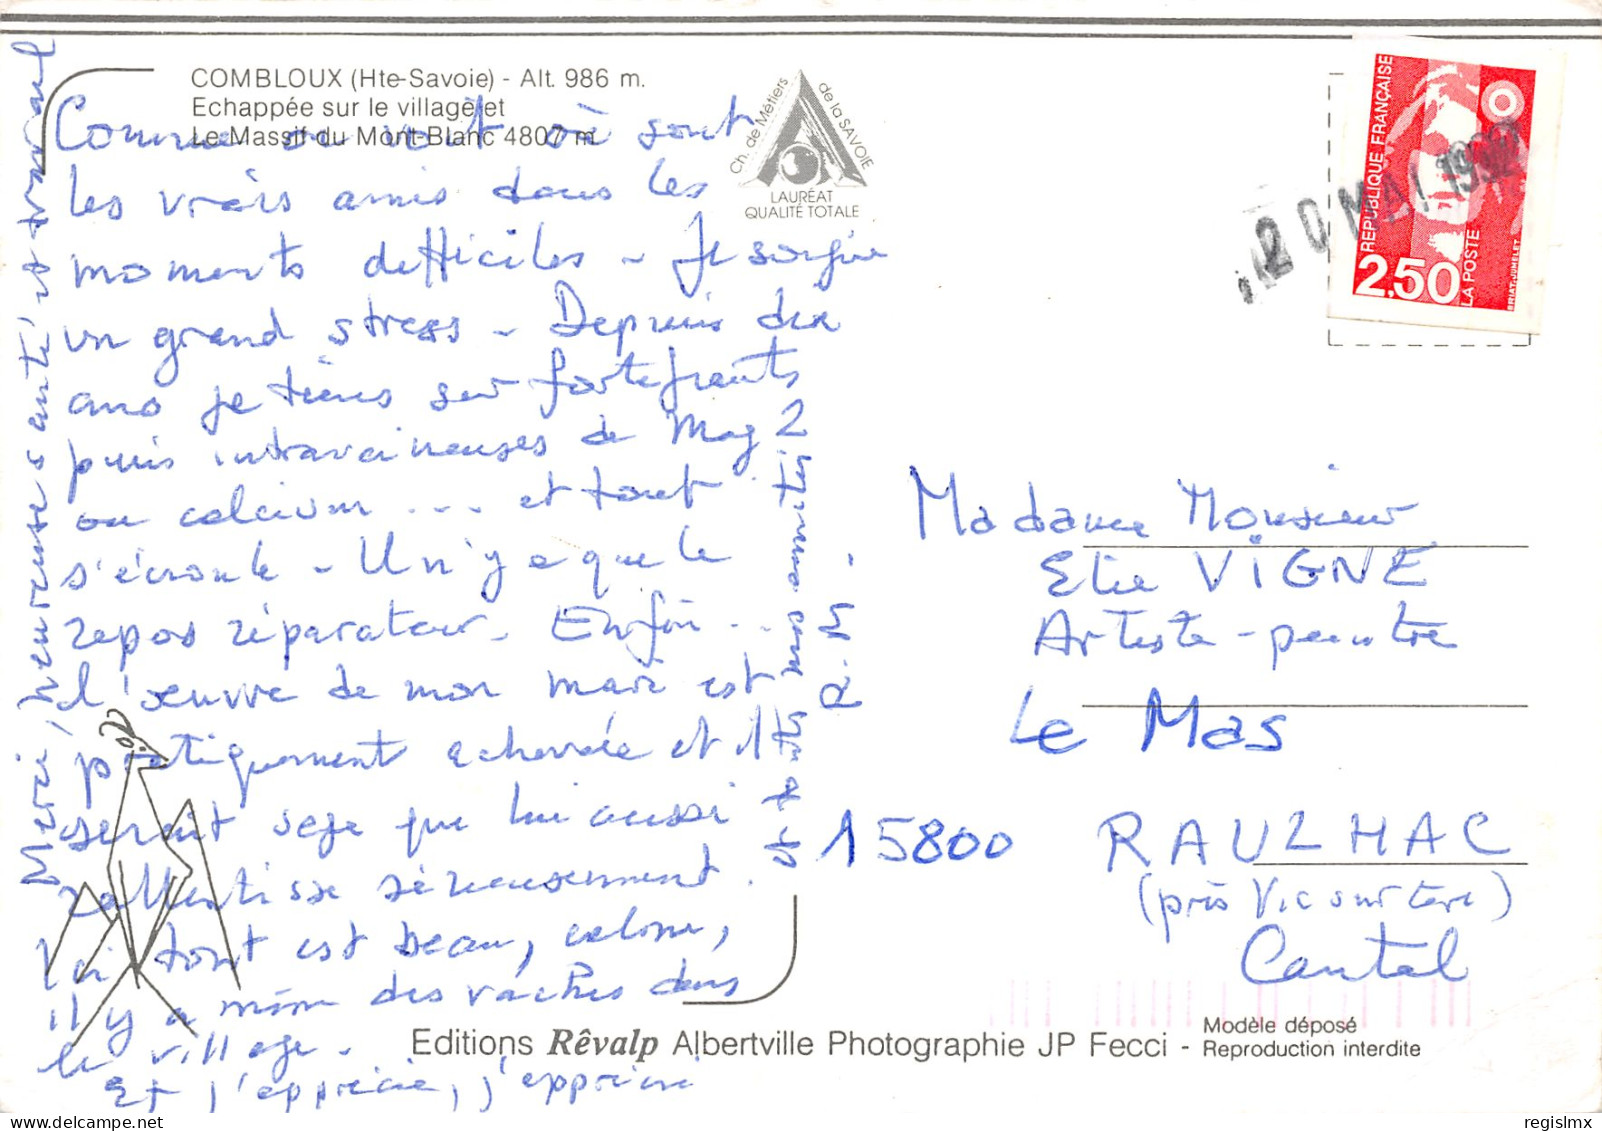 COMBLOUX (Hte-Savoie) - Alt. 986 m.
Echappée sur le village et
Le Massif du Mont-Blanc 4807 m.
Ch. de Métiers de la SAVOIE
LAURÉAT
QUALITÉ TOTALE
REPUBLIQUE FRANÇAISE
2,50 LA POSTE
BRIAT-JUMELET
20 MAI 1992
Comme on voit où sont
les vrais amis dans les
moments difficiles - Je
un grand stress - Depuis dix
ans je tiens sur fortifiants
puis intraveineuses de Mag 2
ou calcium ... et tout
s'écroule - Il n'y a que le
repos réparateur - Enfin ..
L'œuvre de mon mari est
pratiquement achevée et il
serait sage que lui aussi
ralentisse sérieusement.
Ici tout est beau, calme,
il y a même des vaches dans
le village -
Et j'apprécie, j'apprécie
Merci, heureuse santé, et travail
et toutes nos amitiés
R.M.
Madame Monsieur
Elie VIGNE
Artiste-peintre
Le Mas
15800 RAULHAC
(près Vic sur Cère)
Cantal
Editions Rêvalp Albertville Photographie JP Fecci - Modèle déposé
Reproduction interdite
regislmx